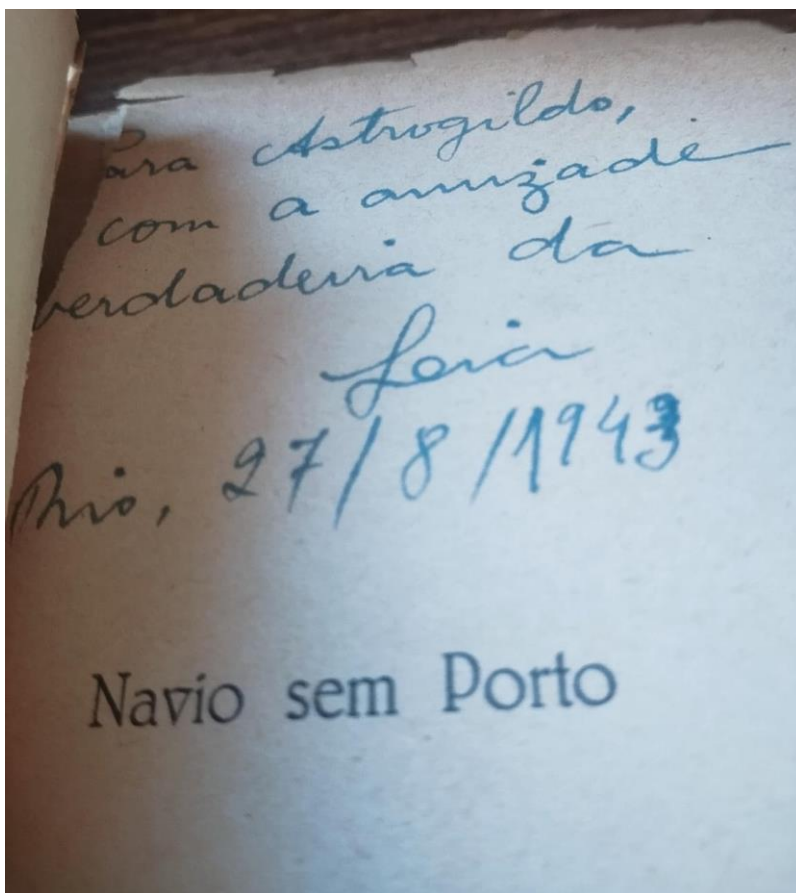 Para Astrogildo,
com a amizade
verdadeira da
Lia
Rio, 27/8/1943
Navio sem Porto